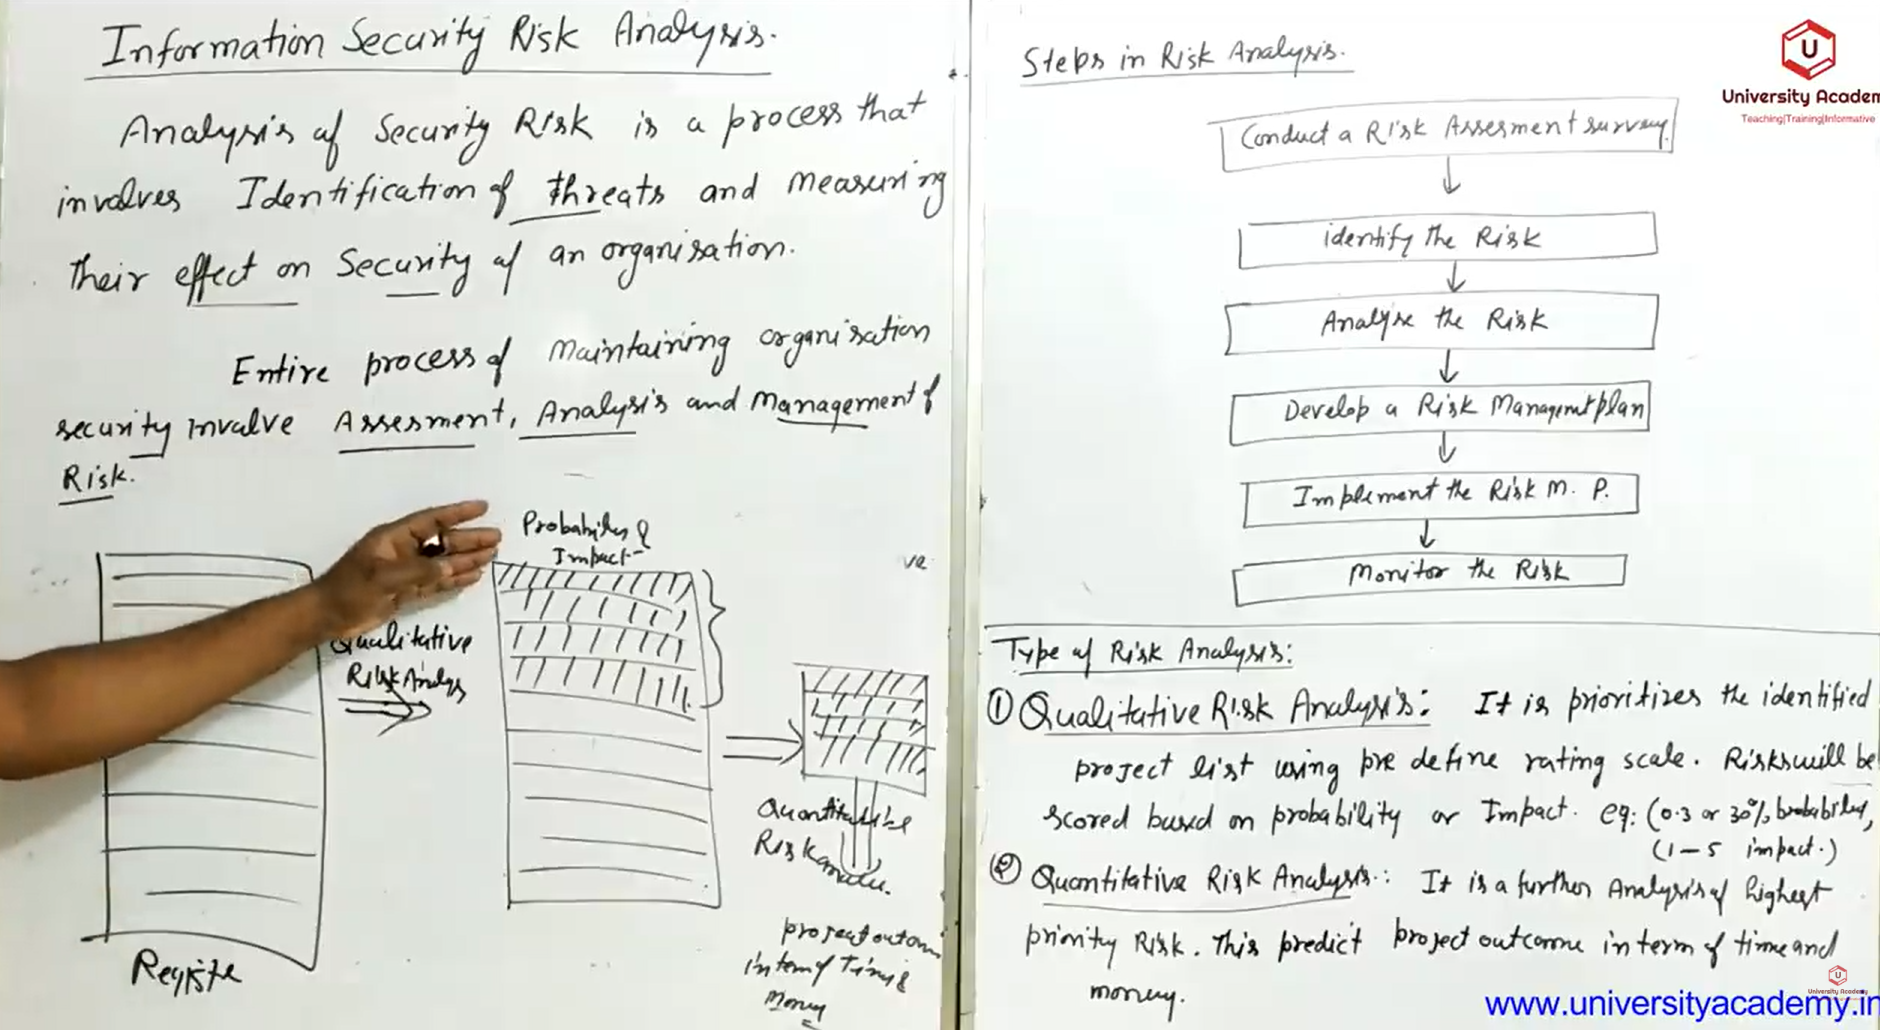 Information Security Risk Analysis.
Analysis of Security Risk is a process that
involves Identification of threats and measuring
their effect on Security of an organisation.
Entire process of maintaining organisation
security involve Assesment, Analysis and Management of
Risk.
Probability &
Impact
Qualitative
Risk Analys
Register
Quantitative
Risk
project outcom
in term of Time &
Money
ve
Steps in Risk Analysis.
Conduct a Risk Assesment survey.
identify the Risk
Analyse the Risk
Develop a Risk Managemt plan
Implement the Risk M. P.
Monitor the Risk
Type of Risk Analysis:
① Qualitative Risk Analysis: It is prioritizes the identified
project list using pre define rating scale. Risks will be
scored based on probability or Impact. eg: (0.3 or 30% probability,
(1 – 5 impact.)
② Quantitative Risk Analysis.: It is a further Analysis of highest
priority Risk. This predict project outcome in term of time and
money.
U
University Academ
Teaching|Training|Informative
U
University Academy
www.universityacademy.in